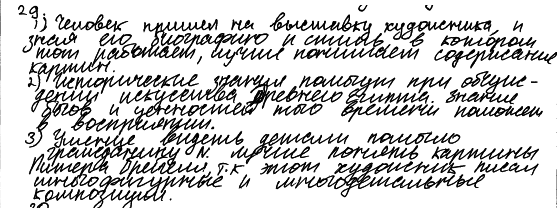 29.
1) Человек пришел на выставку художника, и
зная его биографию и стиль в котором
тот работает, лучше понимает содержание
картин.
2) Исторические знания помогут при обсуж-
дении искусства Древнего Египта. Знание
богов и ценностей того времени поможет
в восприятии.
3) Умение видеть детали помогло
гражданину N. лучше понять картины
Питера Брейгеля, т.к этот художник писал
многофигурные и многодетальные
композиции.